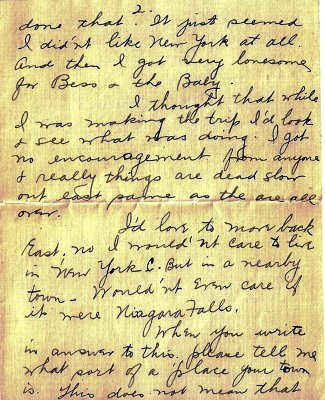 2.
done that. It just seemed
I did'nt like New York at all.
And then I got very lonesome
for Bess & the Baby.
I thought that while
I was making the trip I'd look
& see what was doing. I got
no encouragement from anyone
& really things are dead slow
out east same as the are all
over.
I'd love to move back
East, no I would'nt care to live
in New York C. But in a nearby
town - Would'nt Even care if
it were Niagara Falls.
When you write
in answer to this, please tell me
what sort of a place your town
is. This does not mean that